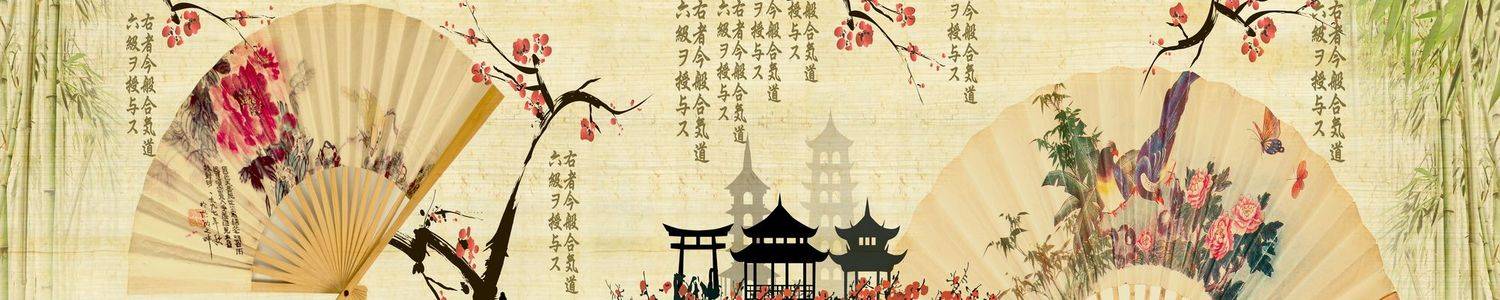 右者今般合気道
六級ヲ授与ス
右者今般合気道
六級ヲ授与ス
右者今般合気道
六級ヲ授与ス
右者今般合気道
六級ヲ授与ス
今般合気道
級ヲ授与ス
般合気道
ヲ授与ス
今般合気道
級ヲ授与ス
右者今般合気道
六級ヲ授与ス